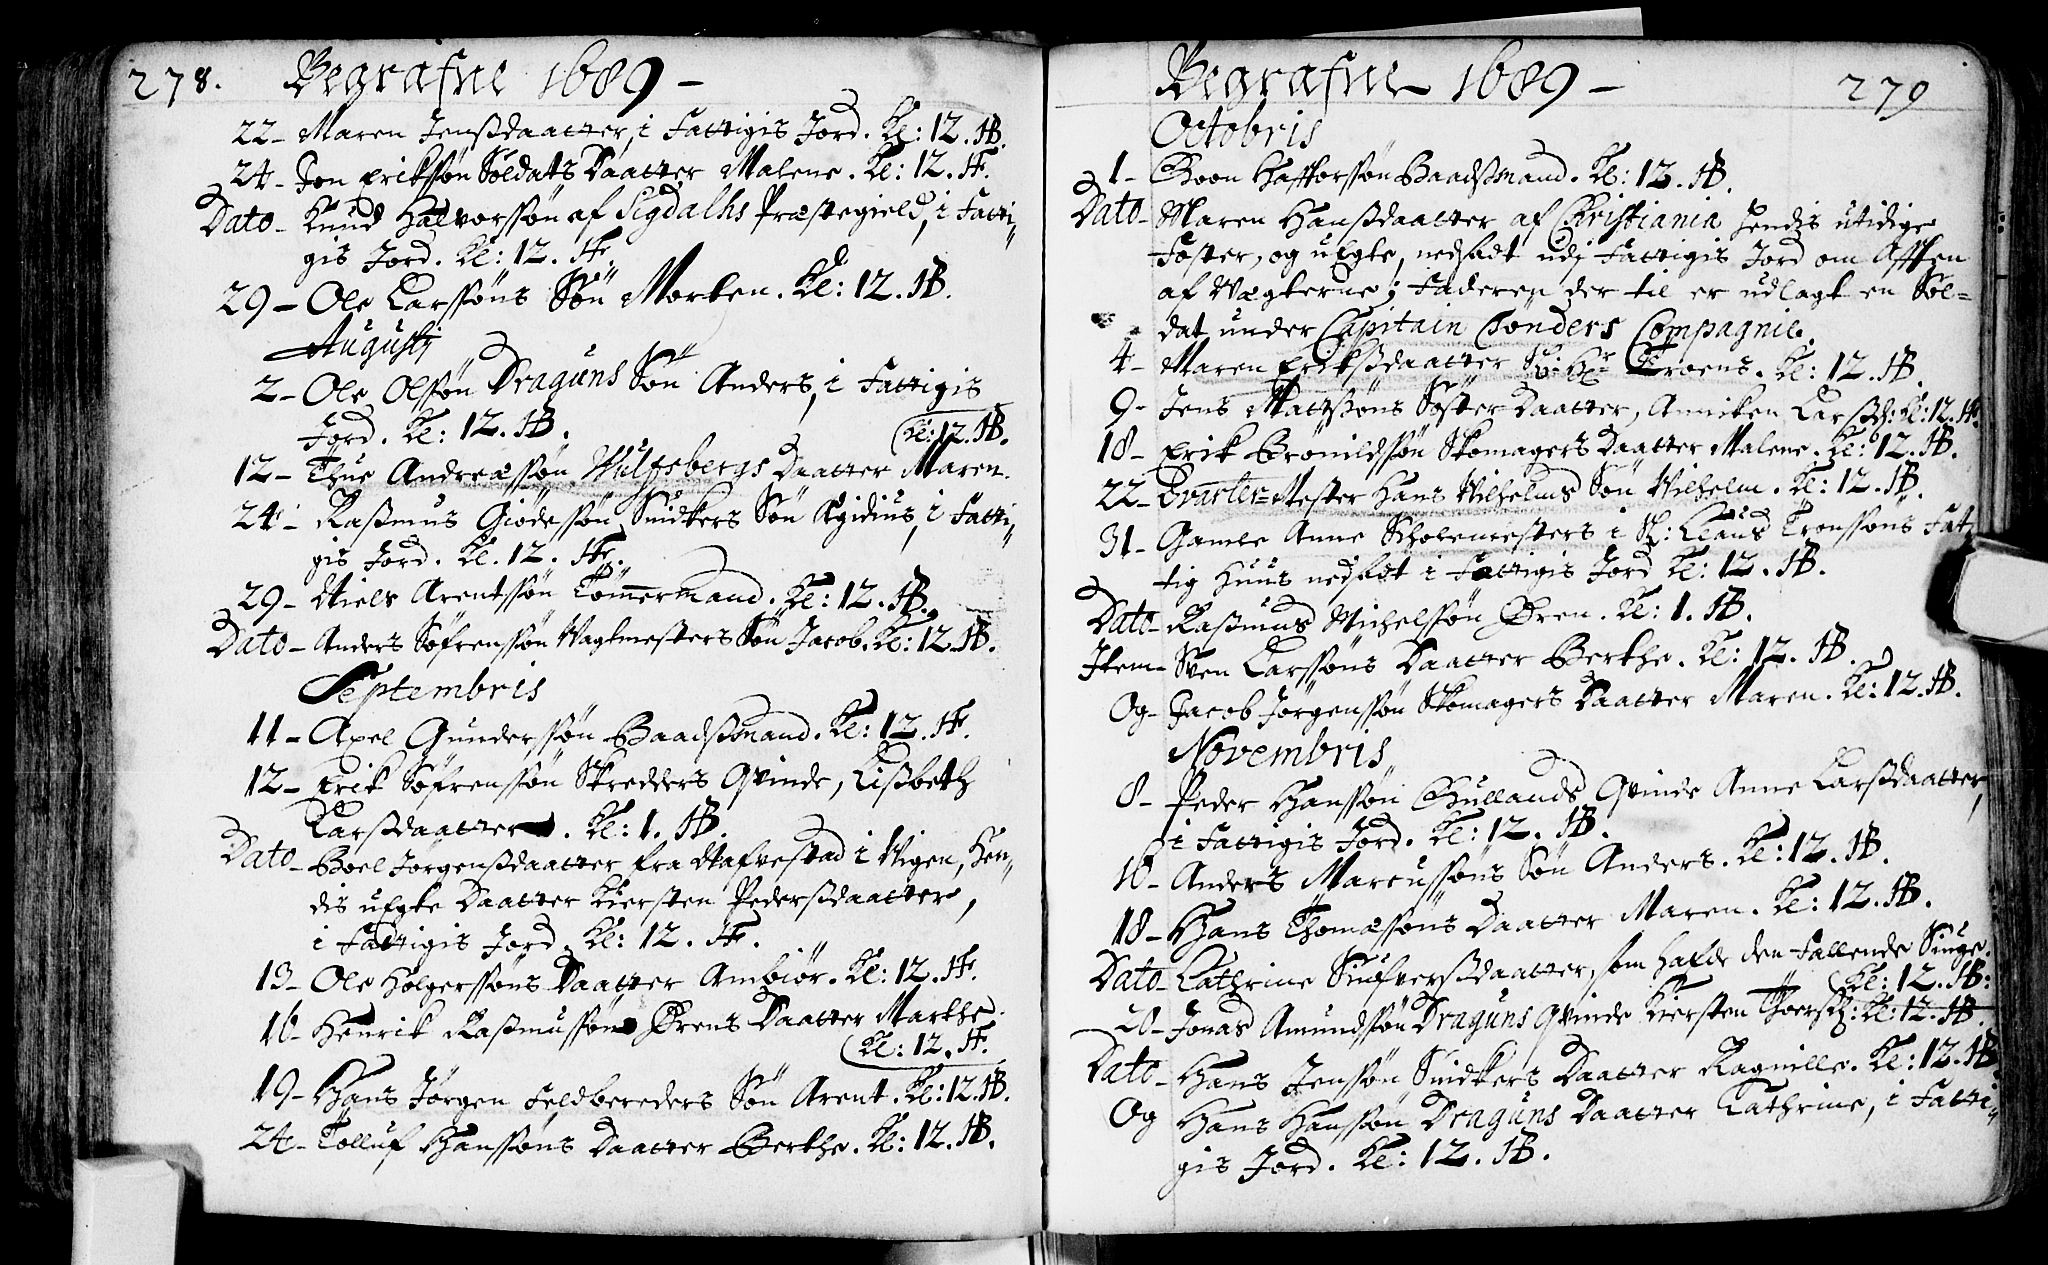 278. Begrafne 1689 –
22 – Maren Jenßdaatter, i Fattigis Jord. Kl: 12. HB.
24 – Jon Erikssøn Soldats Daatter Malene. Kl: 12. HF.
Dato – Knud Halvorssøn af Sigdalhs Præstegield, i Fatti„
gis Jord. Kl: 12. HF.
29 – Ole Larssøns Søn Morten. Kl: 12. HB.
Augustj
2 – Ole Olssøn Draguns Søn Anders, i Fattigis
Jord. Kl: 12. HB.
(Kl: 12. HB.
12 – Thue Andreæssøn Wulfsbergs Daatter Maren.
24 – Raßmus Giødessøn Snidkers Søn Ægidius, i Fatti„
gis Jord. Kl. 12. HF.
29 – Niels Arentssøn Tømmermand. Kl: 12. HB.
Dato – Anders Søfrenssøn Wagtmesters Søn Jacob. Kl: 12. HB.
Septembris
11 – Axel Gunderssøn Baadßmand. Kl: 12. HF.
12 – Erik Søfrenssøn Skredders Qvinde, Lißbeth
Larßdaatter. Kl: 1. HB.
Dato – Boel Jørgenßdaatter fra Nafvestad i Vigen, Hen„
dis uEgte Daatter Kiersten Pederßdaatter,
i Fattigis Jord. Kl: 12. HF.
13 – Ole Holgerssøns Daatter Ambiør. Kl: 12. HF.
16 – Henrik Raßmussøn Ørens Daatter Marthe.
(Kl: 12. HF.
19 – Hans Jørgen Feldbereders Søn Arent. Kl: 12. HB.
24 – Tolluf Hanssøns Daatter Berthe. Kl: 12. HB.
Begrafne 1689 – 279
Octobris
1 – Boon Hafforssøn Baadßmand. Kl: 12. HB.
Dato – Maren Hanßdaatter af Christiania hendis utidige
Foster, og uEgte, nedsadt udj Fattigis Jord om Afften
af Vægterne; Faderen der til er udlagt en Sol=
dat under Capitain Tønders Compagnie.
4 – Maren Erikßdaatter Kl: 12. HB.
9 – Jens Mattßøns Søster Daatter, Anniken Larßd: Kl: 12. HF.
18 – Erik Brønildssøn Skomagers Daatter Malene. Kl: 12. HB.
22 – Qvarter=Mester Hans Wilhelms Søn Wilhelm. Kl: 12. HB.
31 – Gamle Anne Scholemesters i Sl: Claus Trenssøns Fat„
tig Huus nedsadt i Fattigis Jord Kl: 12. HB.
Dato – Raßmus Michelssøn Øren. Kl: 1. HB.
Item – Sven Larssøns Daatter Berthe. Kl: 12. HB.
Og – Jacob Jørgenssøn Skomagers Daatter Maren. Kl: 12. HB.
Novembris
8 – Peder Hanssøn Gullands Qvinde Anne Larßdaatter,
i Fattigis Jord. Kl: 12. HB.
10 – Anders Marcussøns Søn Anders. Kl: 12. HB.
18 – Hans Thomæssøns Daatter Maren. Kl: 12. HB.
Dato – Cathrine Siufverßdaatter, som hafde den Fallende Siuge.
(Kl: 12. HB:
20 – Jonas Amundssøn Draguns Qvinde Kiersten Thoersd: Kl: 12. HB.
Dato – Hans Jenssøn Snidkers Daatter Ragnille. Kl: 12. HB
Og Hans Hanssøn Draguns Daatter Cathrine, i Fatti„
gis Jord. Kl: 12. HB.